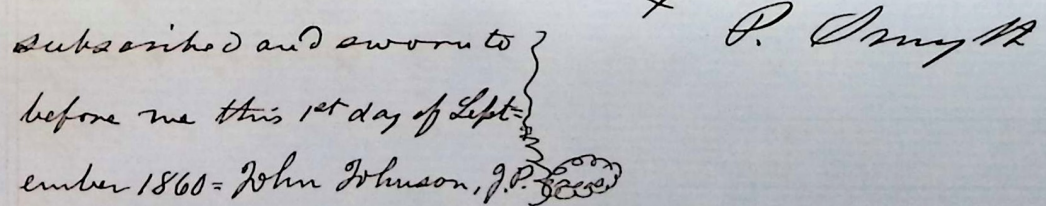 subscribed and sworn to
P. Smyth
before me this 1st day of Sept=
ember 1860= John Johnson, J.P.